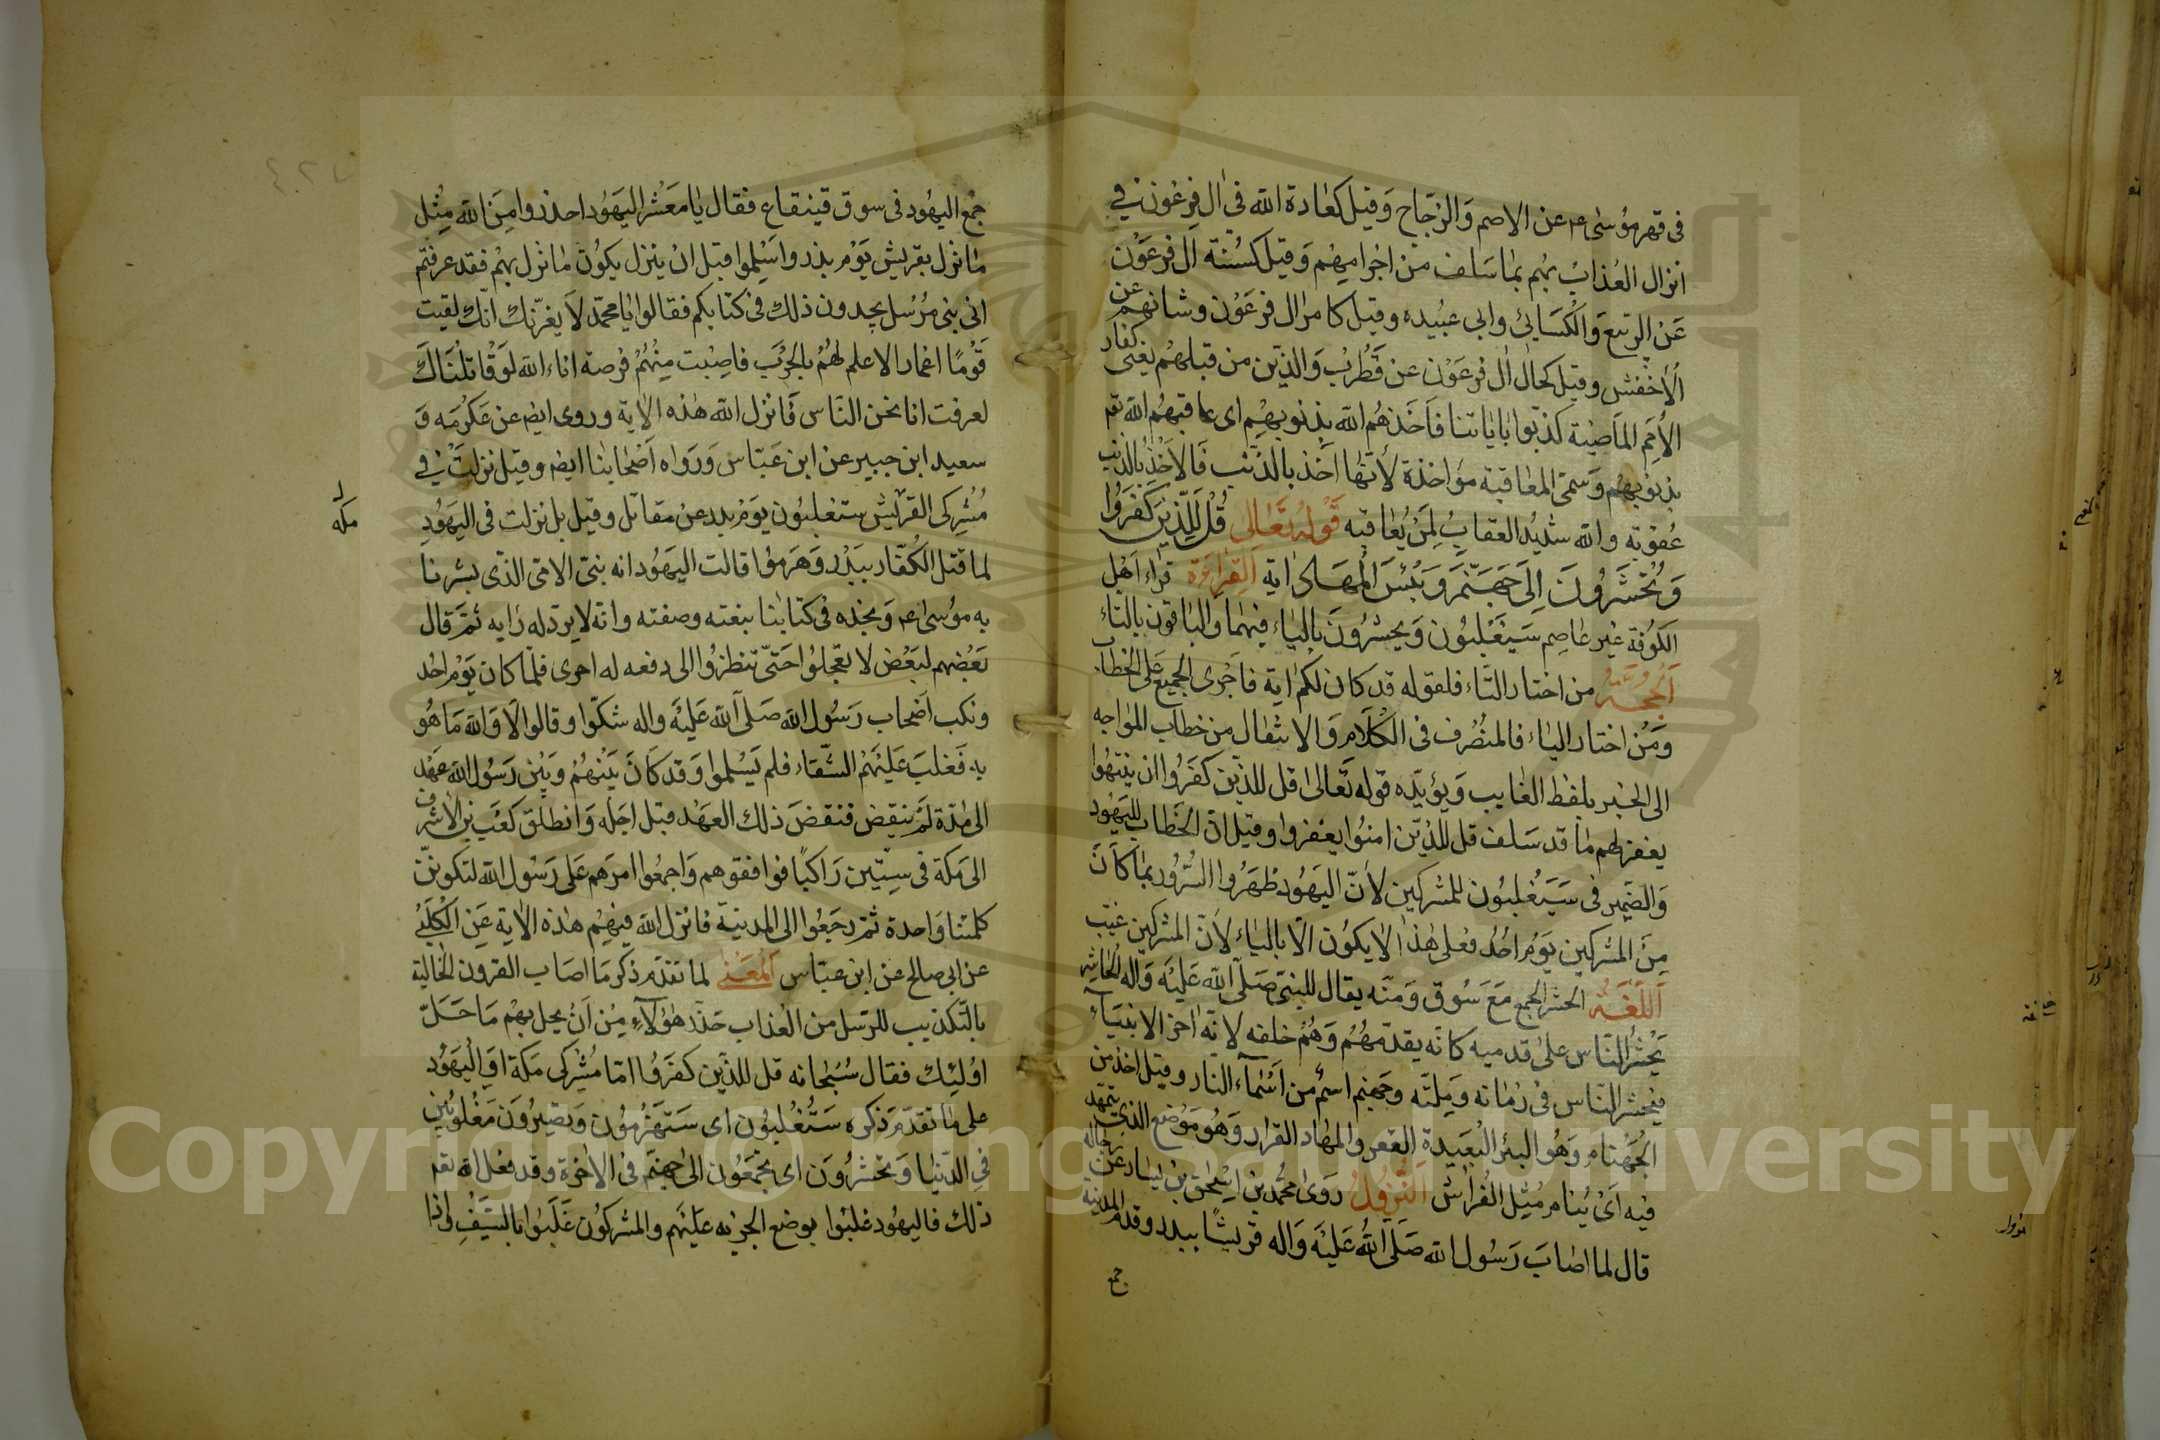 في قهر موسى ء عن الاصم والزجاج وقيل كعادة الله في ال فرعون في
انزال العذاب بهم بما سلف من اجرامهم وقيل كسنة ال فرعون
عن الربيع والكسائي وابي عبيده وقيل كامر ال فرعون وشانهم عن
الاخفش وقيل كحال ال فرعون عن قطرب والذين من قبلهم يعنى كفار
الأمم الماضية كذبوا باياتنا فاخذهم الله بذنوبهم اى عاقبهم الله تعم
بذنوبهم وسمى المعاقبة مواخذة لأنها اخذ بالذنب فالاخذ بالذنب
عقوبة والله شديد العقاب لمن يعاقبه قوله تعالى قل للذين كفروا
وتحشرون الى جهنم وبئس المهاد اية القراءة قراء اهل
الكوفة غير عاصم سيغلبون ويحشرون بالياء فيهما والباقون بالتاء
الحجة من اختار التاء فلقوله قد كان لكم اية فاجرى الجميع على الخطاب
ومن اختار الياء فالمتصرف في الكلام والانتقال من خطاب المواجه
الى الخبر بلفظ الغايب ويؤيده قوله تعالى قل للذين كفروا ان ينتهوا
يغفر لهم ما قد سلف قل للذين امنوا يغفروا وقيل ان الخطاب لليهود
والضمير في سيغلبون للمشركين لان اليهود ظهروا السرور بما كان
من المشركين يوم احد فعلى هذا لا يكون الا بالياء لان المشركين غيب
اللغة الحشر الجمع مع سوق ومنه يقال للنبي صلى الله عليه واله الحاشر
يحشر الناس على قدميه كانه يقدمهم وهم خلفه لانه اخر الانبياء
فيحشر الناس في زمانه وملته وجهنم اسم من اسماء النار وقيل اخذ من
الجهنام وهو البئر البعيدة القعر والمهاد القرار وهو موضع الذى يتمهد
فيه اى ينام مثل الفراش النزول روى محمد بن اسحق بن يسار عن رجاله
قال لما اصاب رسول الله صلى الله عليه واله قريشا ببدر وقدم المدينة
جمع
جمع اليهود في سوق قينقاع فقال يا معشر اليهود احذروا من الله مثل
ما نزل بقريش يوم بدر واسلموا قبل ان ينزل بكم ما نزل بهم فقد عرفتم
انى نبى مرسل يجدون ذلك في كتابكم فقالوا يا محمد لا يغرنك انك لقيت
قوما اغمار الا علم لهم بالحرب فاصبت منهم فرصة انا والله لو قاتلناك
لعرفت انا نحن الناس فانزل الله هذه الاية وروى ايضا عن عكرمه و
سعيد ابن جبير عن ابن عباس ورواه اصحابنا ايضا وقيل نزلت في
مشركى القريش ستغلبون يوم بدر عن مقاتل وقيل بل نزلت في اليهود
مكه
لما قتل الكفار ببدر وهزموا قالت اليهود انه نبى الامى الذى بشرنا
به موسى ء ونجده في كتابنا بنعته وصفته وانه لا يرد له رايه ثم قال
بعضهم لبعض لا تعجلوا حتى تنظروا الى دفعه له اخرى فلما كان يوم احد
ونكب اصحاب رسول الله صلى الله عليه واله شكوا وقالوا لا والله ما هو
به فغلب عليهم الشقاء فلم يسلموا وقد كان بينهم وبين رسول الله عهد
الى مدة لم ينقض فنقض ذلك العهد قبل اجله وانطلق كعب بن الاشرف
الى مكة في ستين راكبا فوافقوهم واجمعوا امرهم على رسول الله لتكونن
كلمتنا واحدة ثم رجعوا الى المدينة فانزل الله فيهم هذه الاية عن الكلبى
عن ابي صالح عن ابن عباس المعنى لما تقدم ذكر ما اصاب القرون الخالية
بالتكذيب للرسل من العذاب حذر هؤلاء من ان يحل بهم ما حل
اولئك فقال سبحانه قل للذين كفروا اما مشركى مكة او اليهود
على ما تقدم ذكره ستغلبون اى ستهزمون وتصيرون مغلوبين
في الدنيا وتحشرون اى تجمعون الى جهنم في الاخرة وقد فعل الله تعم
ذلك فاليهود غلبوا بوضع الجزيه عليهم والمشركون غلبوا بالسيف واذا
Copyright © King Saud University